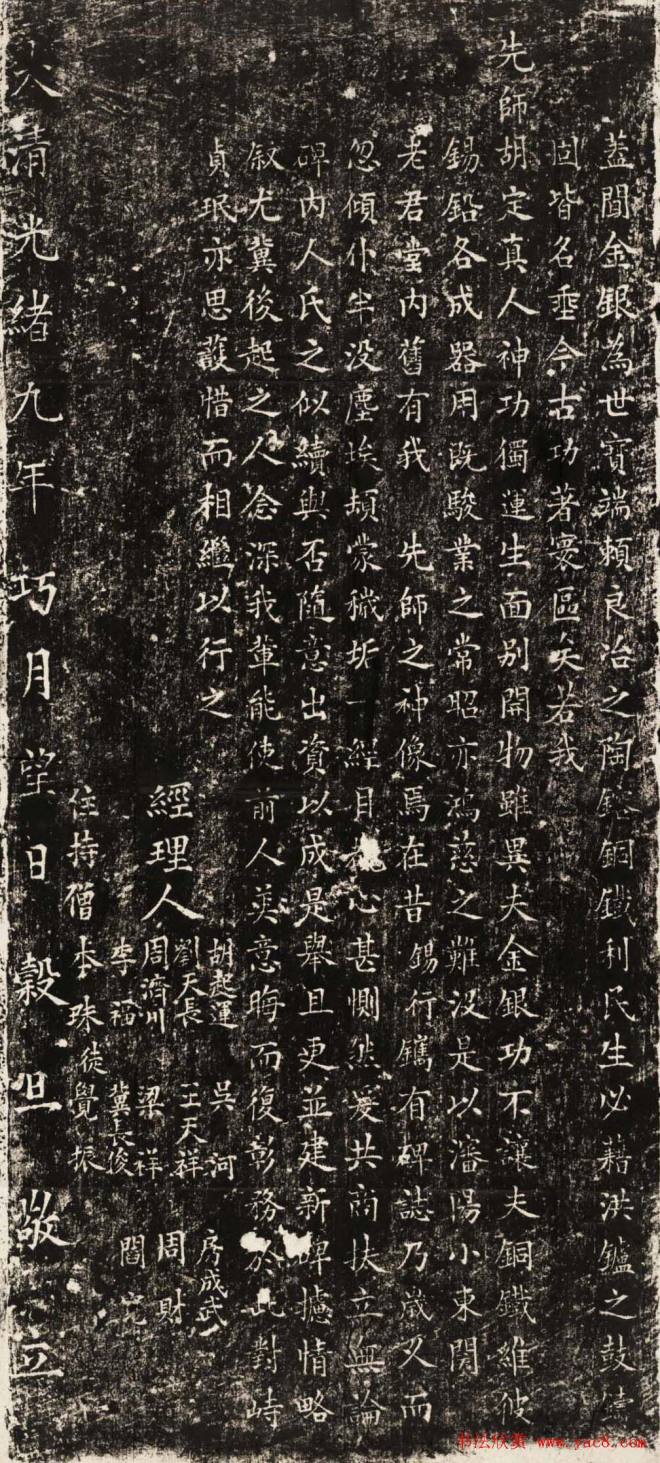 蓋聞金銀為世寶端賴良冶之陶鎔銅鐵利民生必藉洪鑪之鼓鑄
固皆名垂今古功著寰區矣若我
先師胡定真人神功獨運生面別開物雖異夫金銀功不讓夫銅鐵維彼
錫鉛各成器用既駿業之常昭亦鴻慈之難沒是以瀋陽小東関
老君堂內舊有我 先師之神像焉在昔 錫行鐫有碑誌乃歲久而
忽傾仆半没塵埃頡蒙穢垢一經目 心甚惻然爰共商扶立無論
碑內人氏之似續與否隨意出資以成是舉且更並建新碑攄情略
叙尤冀後起之人念深我輩能使前人美意晦而復彰務於此對峙
貞珉亦思護惜而相繼以行之
經理人
胡起運 吳河 房成武
劉天長 王天祥 周財
周濟川 梁祥 閻
李福 冀長俊
住持僧本珠徒覺振
大清光緒九年巧月望日穀旦敬立
书法欣赏 www.yac8.com